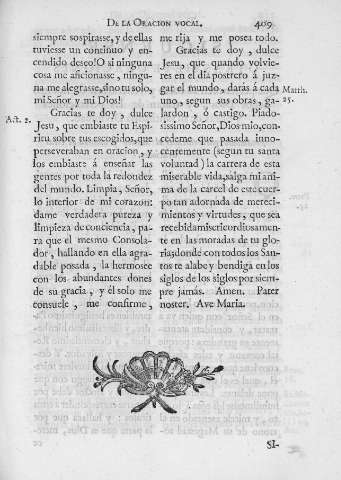 DE LA ORACION VOCAL. 409
siempre sospirasse, y de ellas
tuviesse un continuo y en-
cendido deseo! O si ninguna
cosa me aficionasse, ningu-
na me alegrasse, sino tu solo,
mi Señor y mi Dios!
Act. 2.
Gracias te doy, dulce
Jesu, que embiaste tu Espi-
ritu sobre tus escogidos, que
perseveraban en oracion, y
los embiaste á enseñar las
gentes por toda la redondez
del mundo. Limpia, Señor,
lo interior de mi corazon:
dame verdadera pureza y
limpieza de conciencia, pa-
ra que el mesmo Consola-
dor, hallando en ella agra-
dable posada, la hermosee
con los abundantes dones
de su gracia, y él solo me
consuele, me confirme,
me rija y me posea todo.
Gracias te doy, dulce
Jesu, que quando volvie-
res en el dia postrero á juz-
gar el mundo, darás á cada
uno, segun sus obras, ga-
Matth.
25.
lardon, ó castigo. Piado-
sissimo Señor, Dios mio, con-
cedeme que passada inno-
centemente (segun tu santa
voluntad) la carrera de esta
miserable vida, salga mi ani-
ma de la carcel de este cuer-
po tan adornada de mereci-
mientos y virtudes, que sea
recebida misericordiosamen-
te en las moradas de tu glo-
ria; donde con todos los San-
tos te alabe y bendiga en los
siglos de los siglos por siem-
pre jamás. Amen. Pater
noster. Ave Maria.
SI-